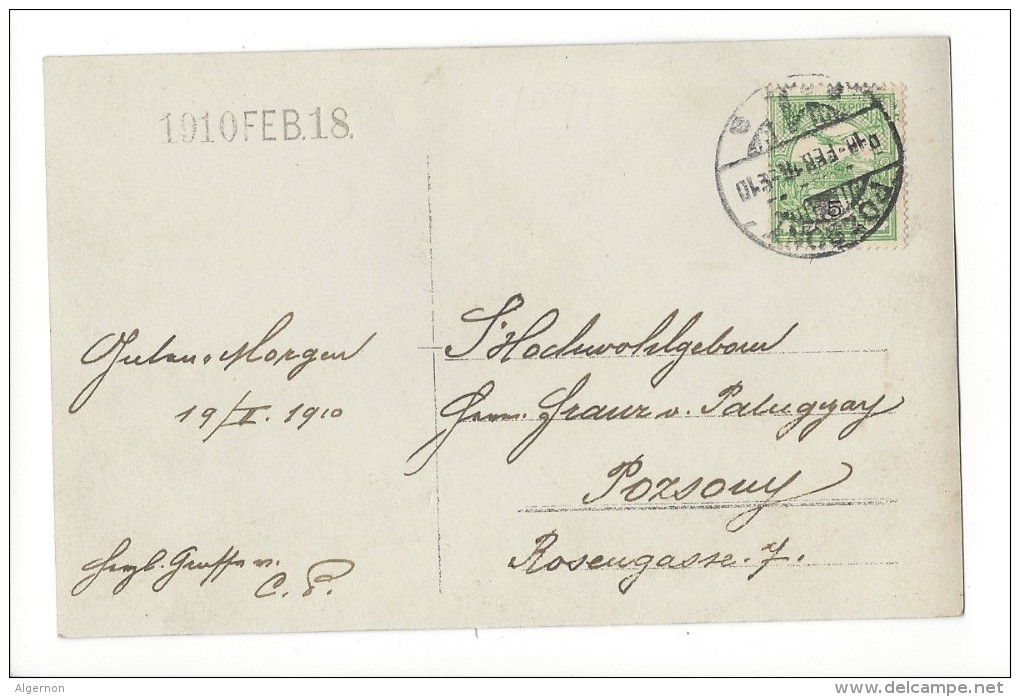 1910 FEB.18.
5
Guten Morgen
19/II. 1910
Herzl. Grüsse v.
C. P.
S' Hochwohlgeboren
Herrn Franz v. Palugyay
Pozsony
Rosengasse 7.
Algernon
www.delcampe.net